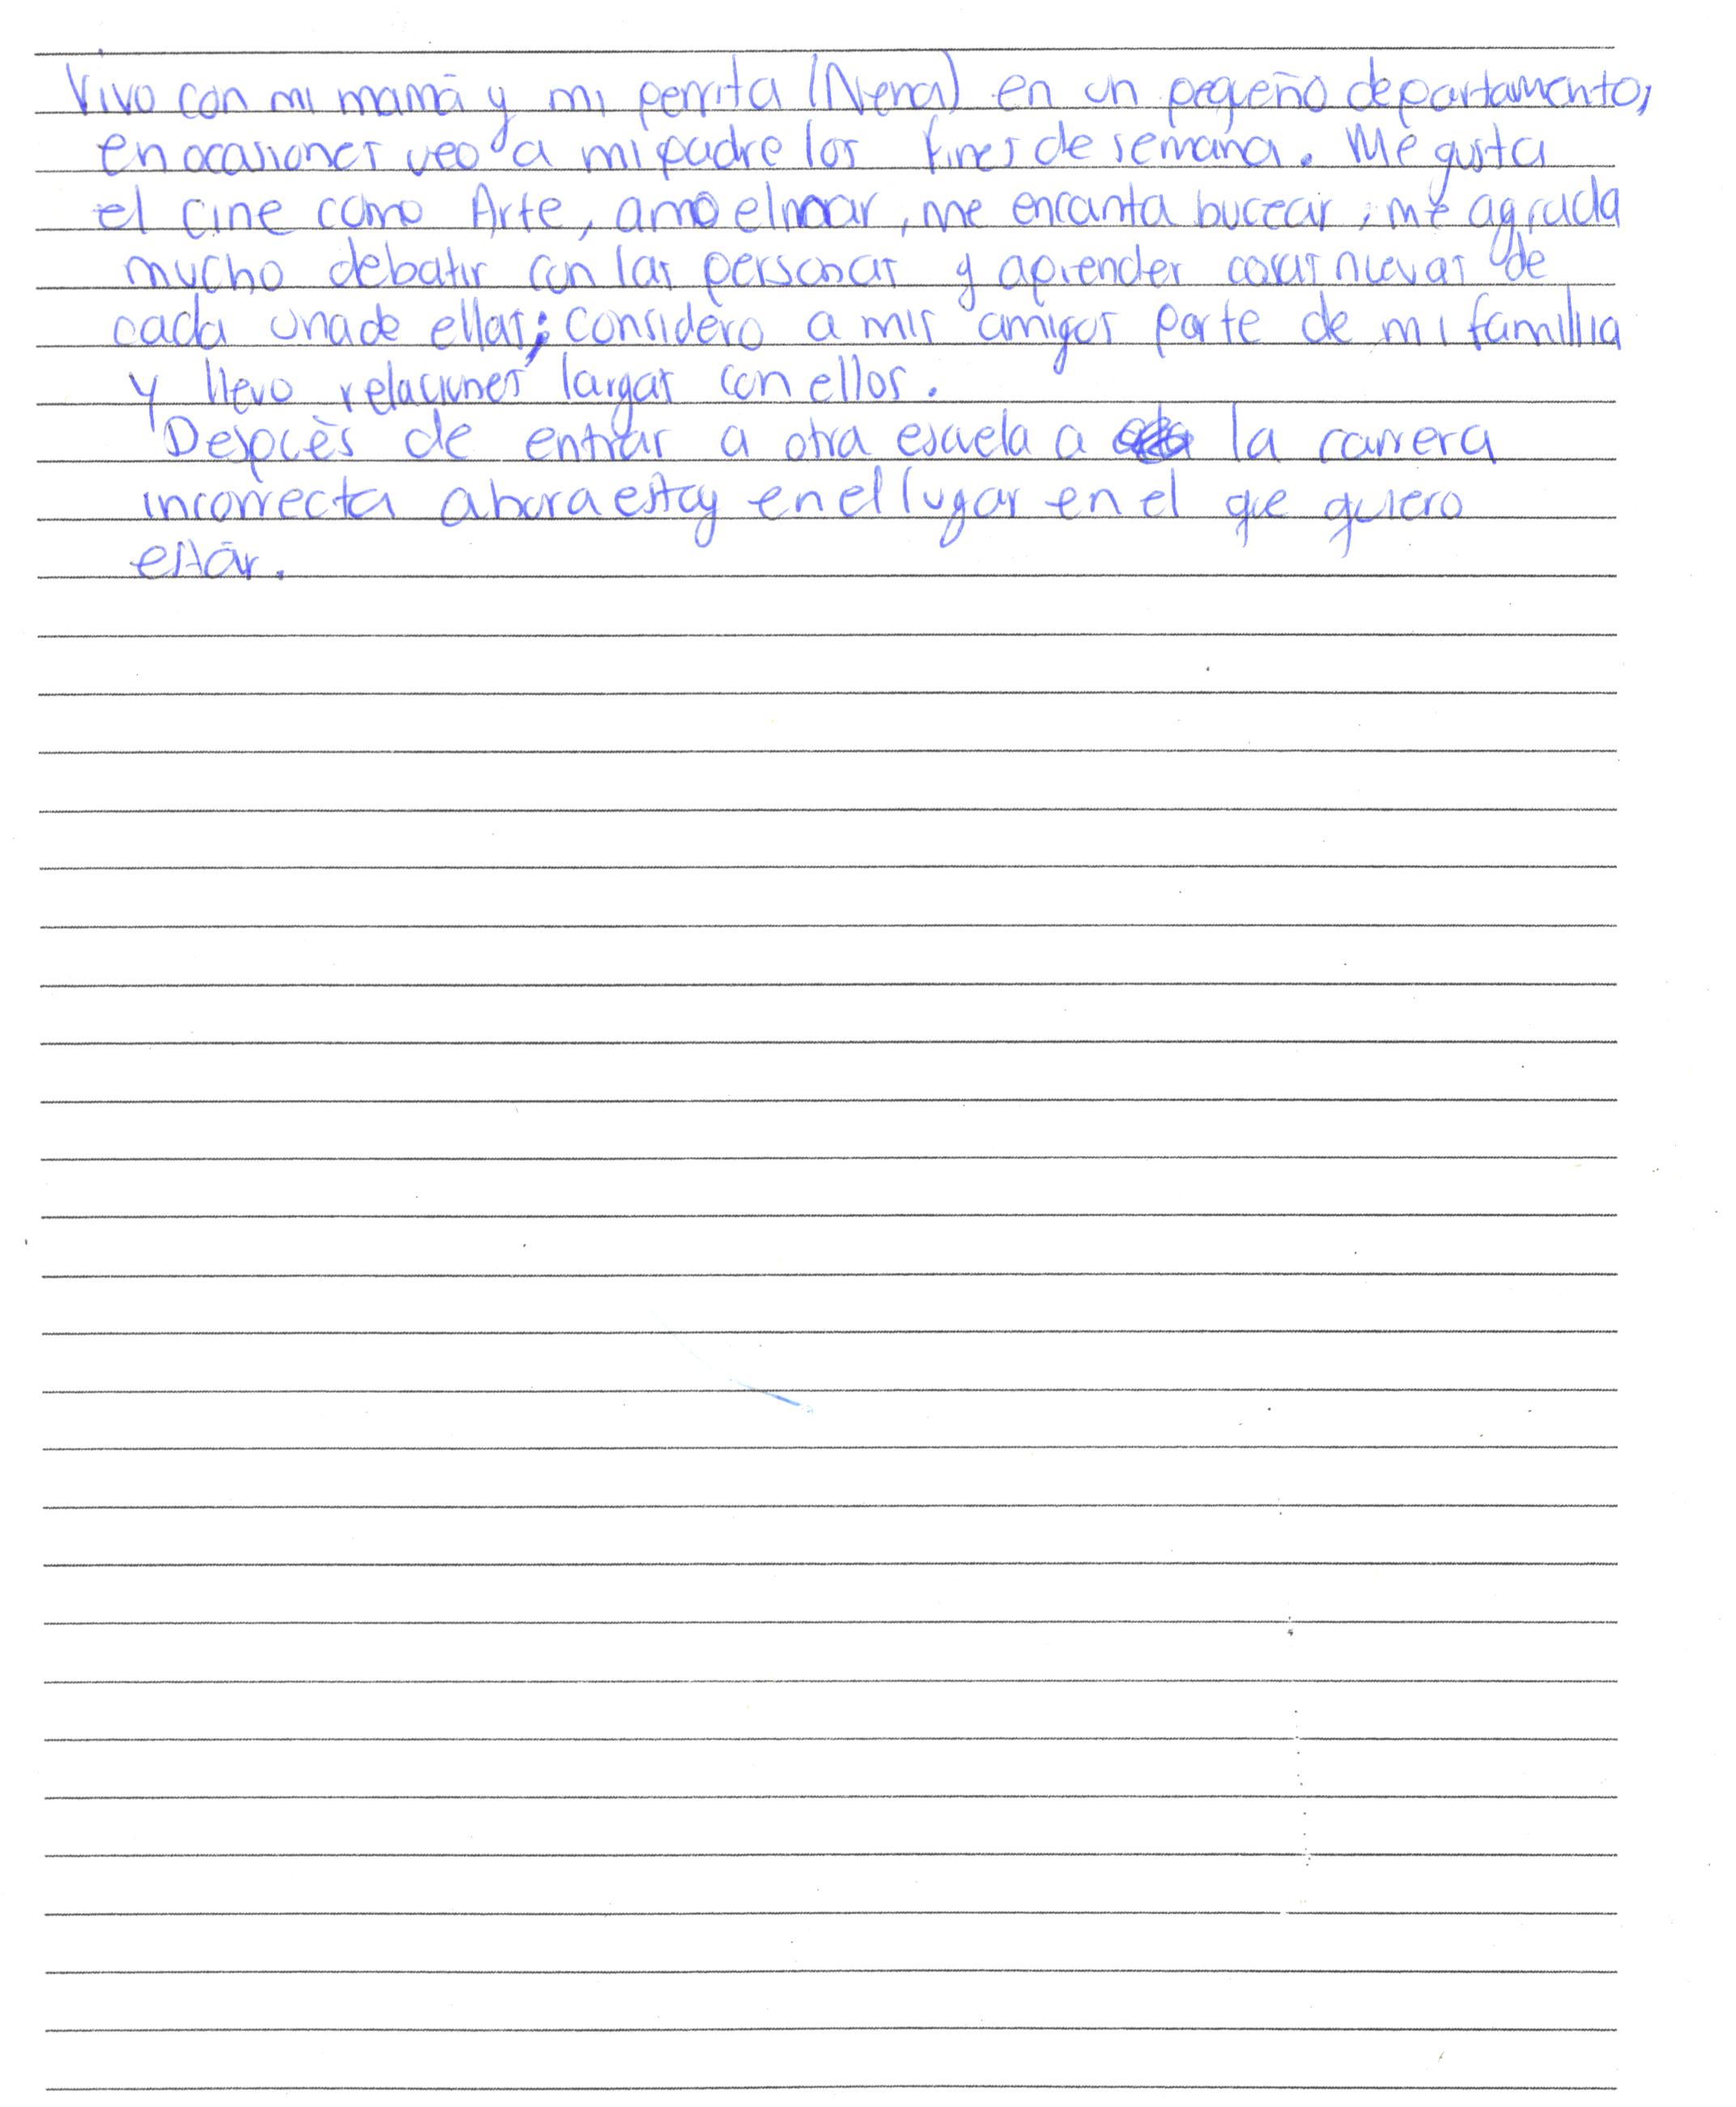 Vivo con mi mamá y mi perrita (Nena) en un pequeño departamento,
en ocasiones veo a mi padre los fines de semana. Me gusta
el cine como Arte, amo el mar, me encanta bucear, me agrada
mucho debatir con las personas y aprender cosas nuevas de
cada una de ellas; considero a mis amigos parte de mi famillia
y llevo relaciones largas con ellos.
Después de entrar a otra escuela a la carrera
incorrecta ahora estoy en el lugar en el que quiero
estár.